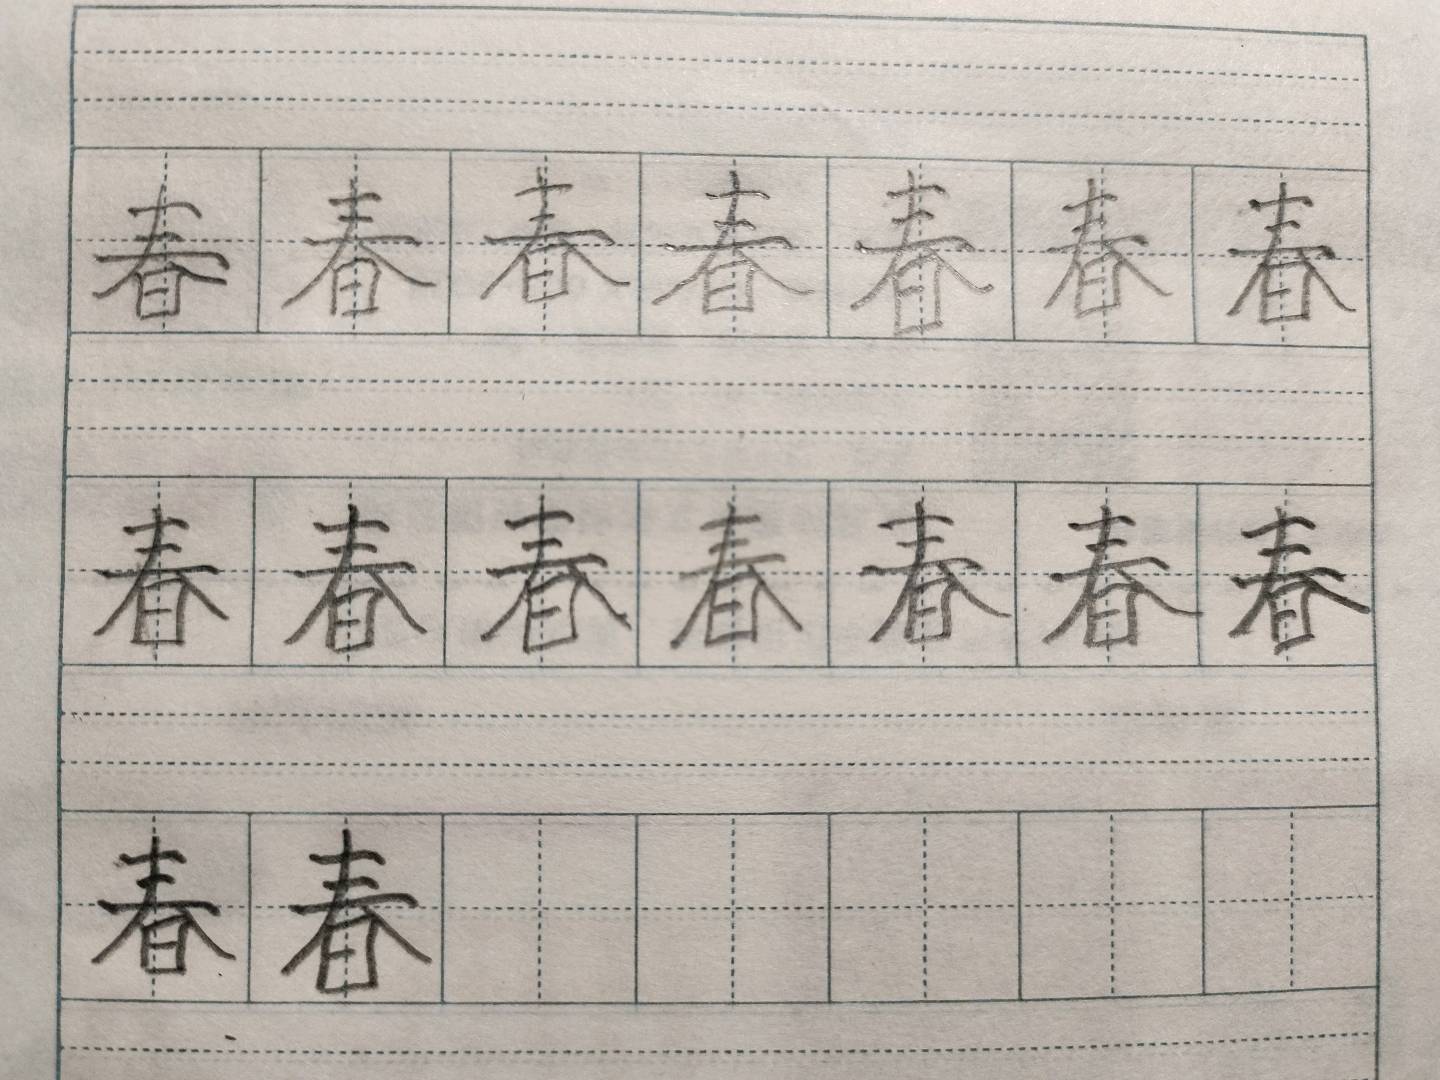 春春春春春春春
春春春春春春春
春春